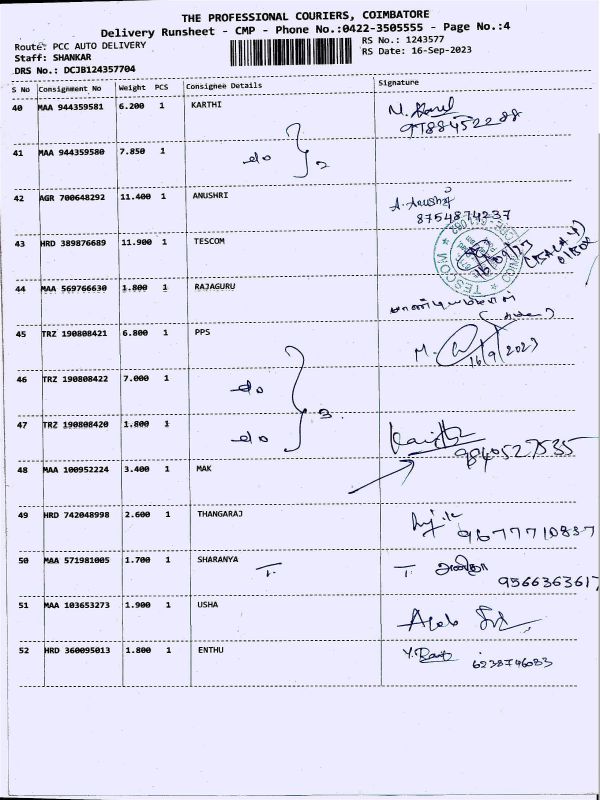 THE PROFESSIONAL COURIERS, COIMBATORE
Delivery Runsheet - CMP - Phone No.:0422-3505555 - Page No.:4
Route: PCC AUTO DELIVERY
RS No.: 1243577
Staff: SHANKAR
RS Date: 16-Sep-2023
DRS No.: DCJB124357704
S No Consignment No Weight PCS Consignee Details Signature
40 MAA 944359581 6.200 1 KARTHI
9788452288
41 MAA 944359580 7.850 1 do } 2
42 AGR 700648292 11.400 1 ANUSHRI A. Anushri
8754874237
43 HRD 389876689 11.900 1 TESCOM TESCOM
16/09/23
44 MAA 569766630 1.800 1 RAJAGURU
45 TRZ 190808421 6.800 1 PPS M.
16/9/2023
46 TRZ 190808422 7.000 1 do } 3
47 TRZ 190808420 1.800 1 do
9840527535
48 MAA 100952224 3.400 1 MAK
49 HRD 742048998 2.600 1 THANGARAJ
9677710837
50 MAA 571981005 1.700 1 SHARANYA T. T.
9566363617
51 MAA 103653273 1.900 1 USHA
52 HRD 360095013 1.800 1 ENTHU
6238746083